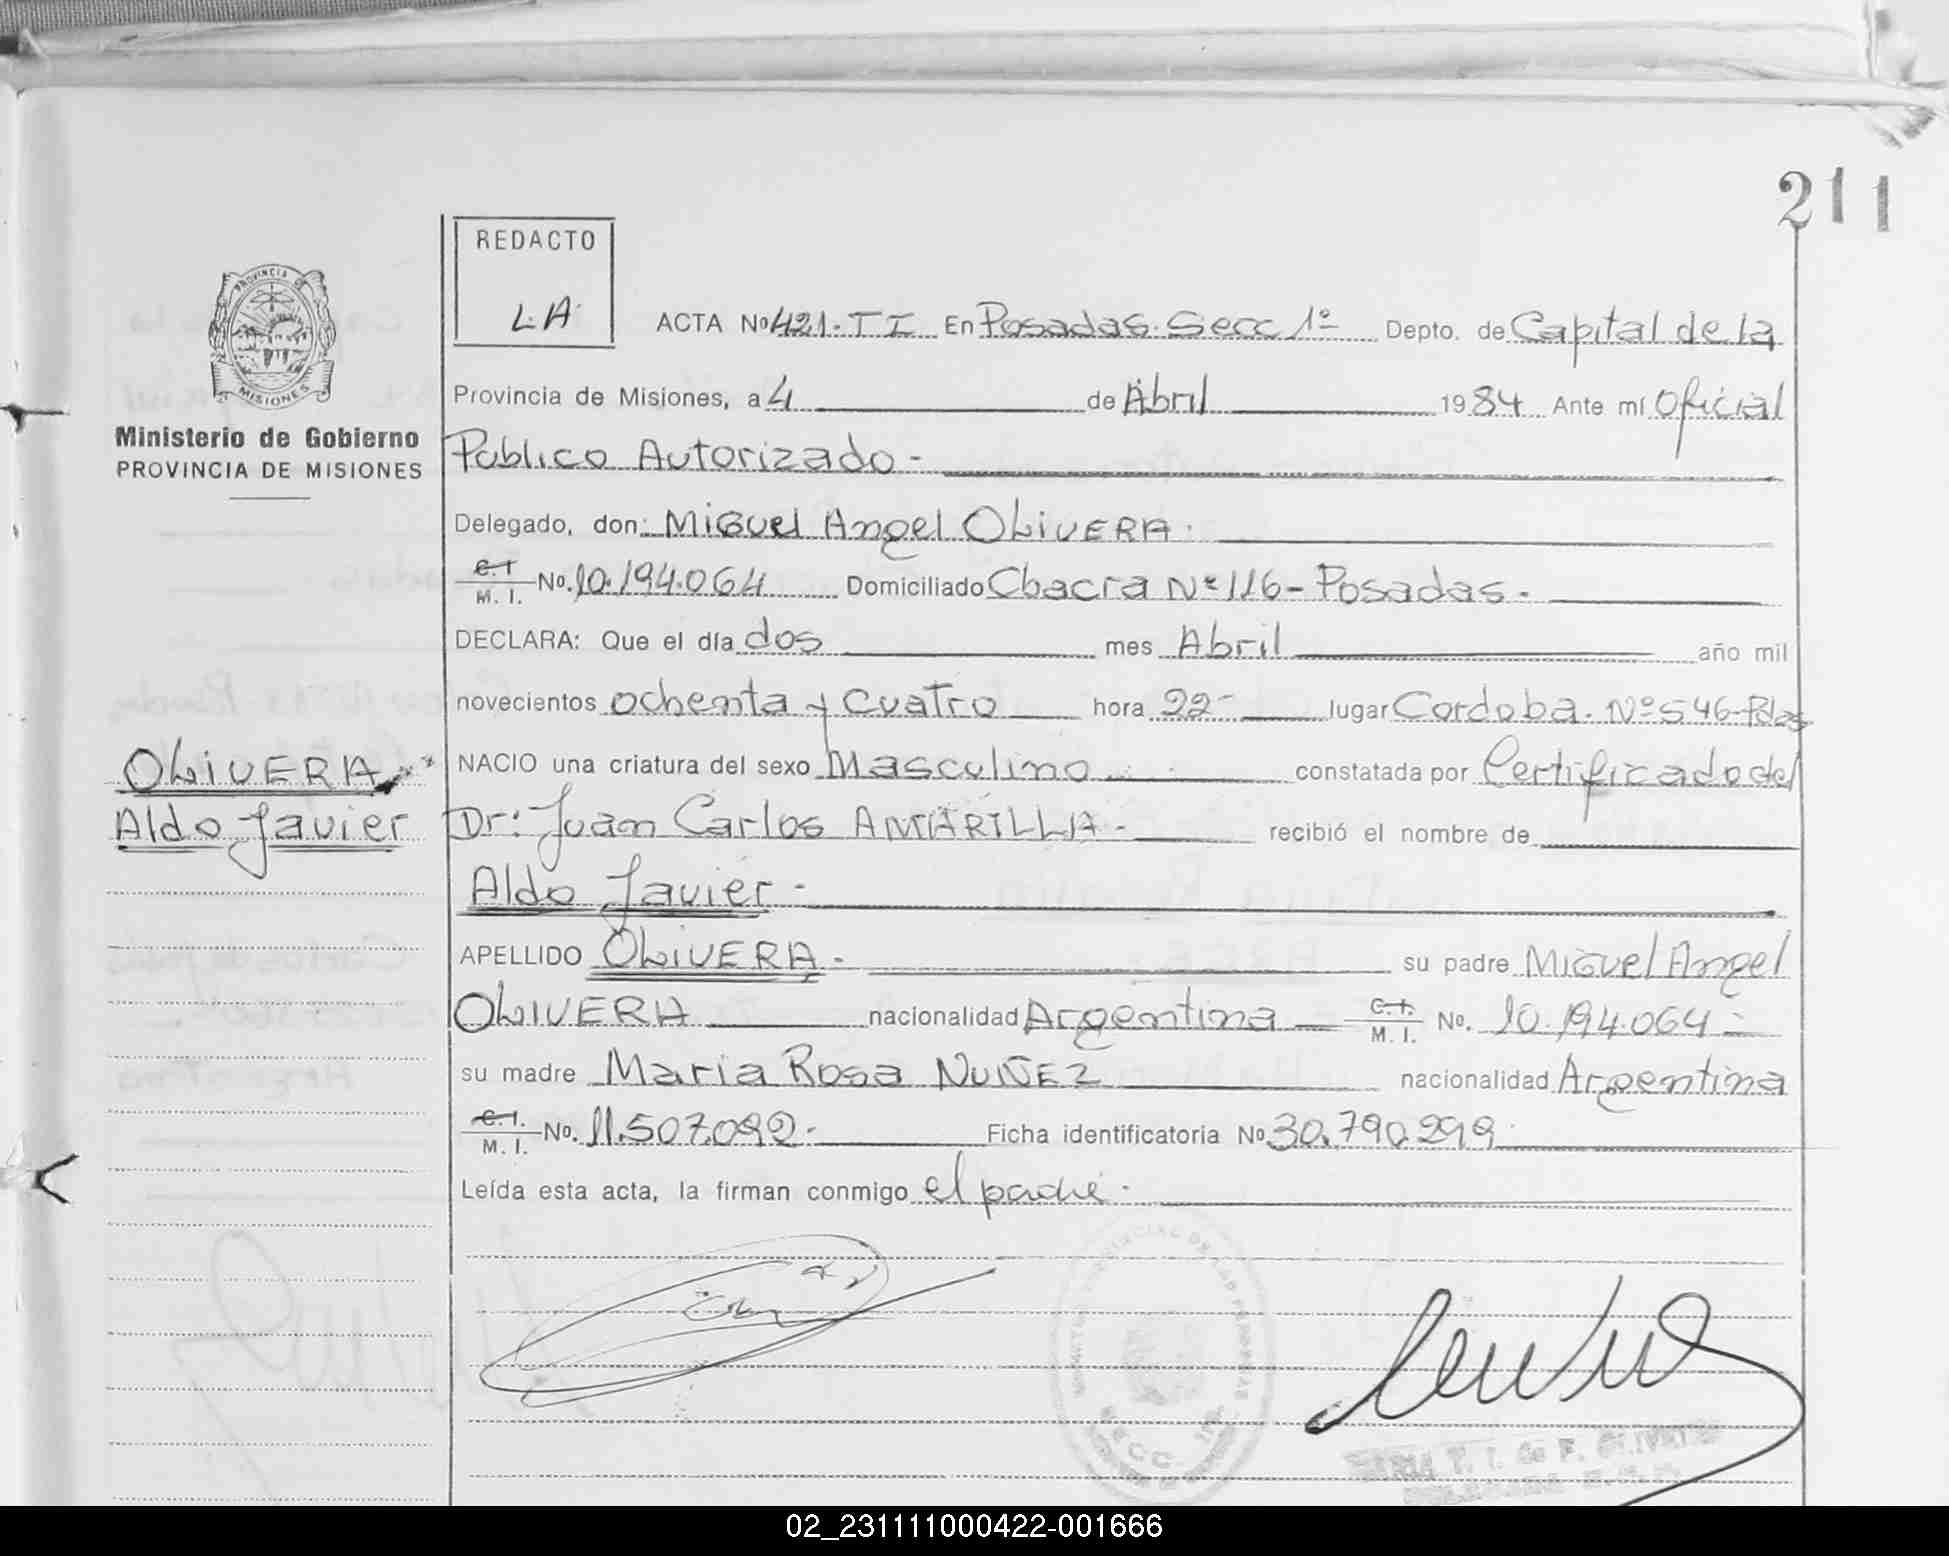 211
REDACTO
L.A.
PROVINCIA DE
MISIONES
Ministerio de Gobierno
PROVINCIA DE MISIONES
ACTA Nº 421-T I. En Posadas. Secc 1º Depto. de Capital de la
Provincia de Misiones, a 4 de Abril 1984 Ante mí Oficial
Público Autorizado -
Delegado, don: Miguel Angel OLIVERA.
C.I. M. I. No. 10.194.064 Domiciliado Chacra Nº 116 - Posadas.-
DECLARA: Que el día dos mes Abril año mil
novecientos ochenta y cuatro hora 22- lugar Cordoba. Nº 546-Pdas
NACIO una criatura del sexo Masculino constatada por Certificado del
Dr: Juan Carlos AMARILLA - recibió el nombre de
Aldo Javier -
APELLIDO OLIVERA - su padre Miguel Angel
OLIVERA nacionalidad Argentina C.I. M. I. No. 10.194.064 -
su madre Maria Rosa NUÑEZ nacionalidad Argentina
C.I. M. I. No. 11.507.092. Ficha identificatoria Nº 30.790.299
Leída esta acta, la firman conmigo el padre -
OLIVERA
Aldo Javier
02_231111000422-001666